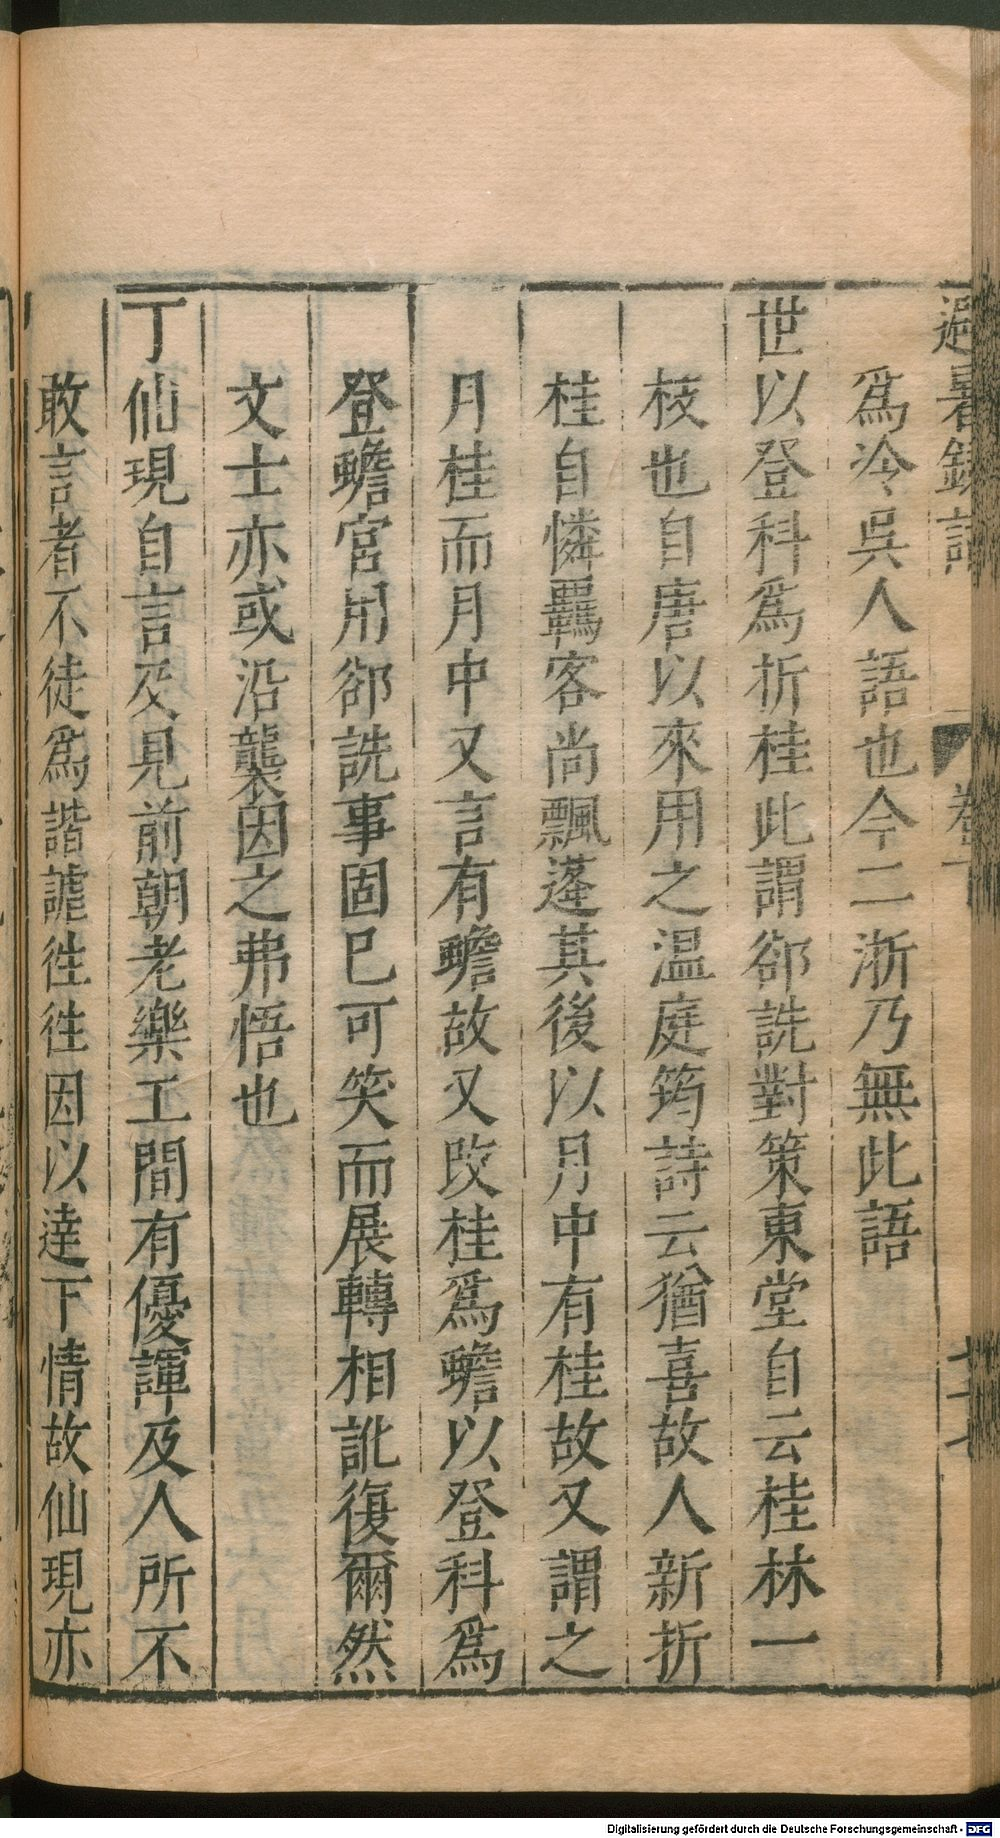 避暑錄話
卷下
七十七
爲冷吳人語也今二浙乃無此語
世以登科爲折桂此謂郤詵對策東堂自云桂林一
枝也自唐以來用之温庭筠詩云猶喜故人新折
桂自憐羈客尚飄蓬其後以月中有桂故又謂之
月桂而月中又言有蟾故又改桂爲蟾以登科爲
登蟾宮用郤詵事固已可笑而展轉相訛復爾然
文士亦或沿襲因之弗悟也
丁仙現自言及見前朝老樂工間有優諢及人所不
敢言者不徒爲諧謔徃徃因以達下情故仙現亦
Digitalisierung gefördert durch die Deutsche Forschungsgemeinschaft - DFG